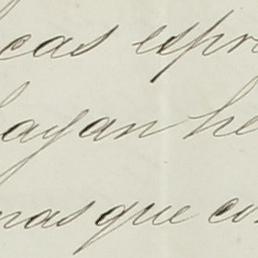 cas espr
hayan he
mas que co